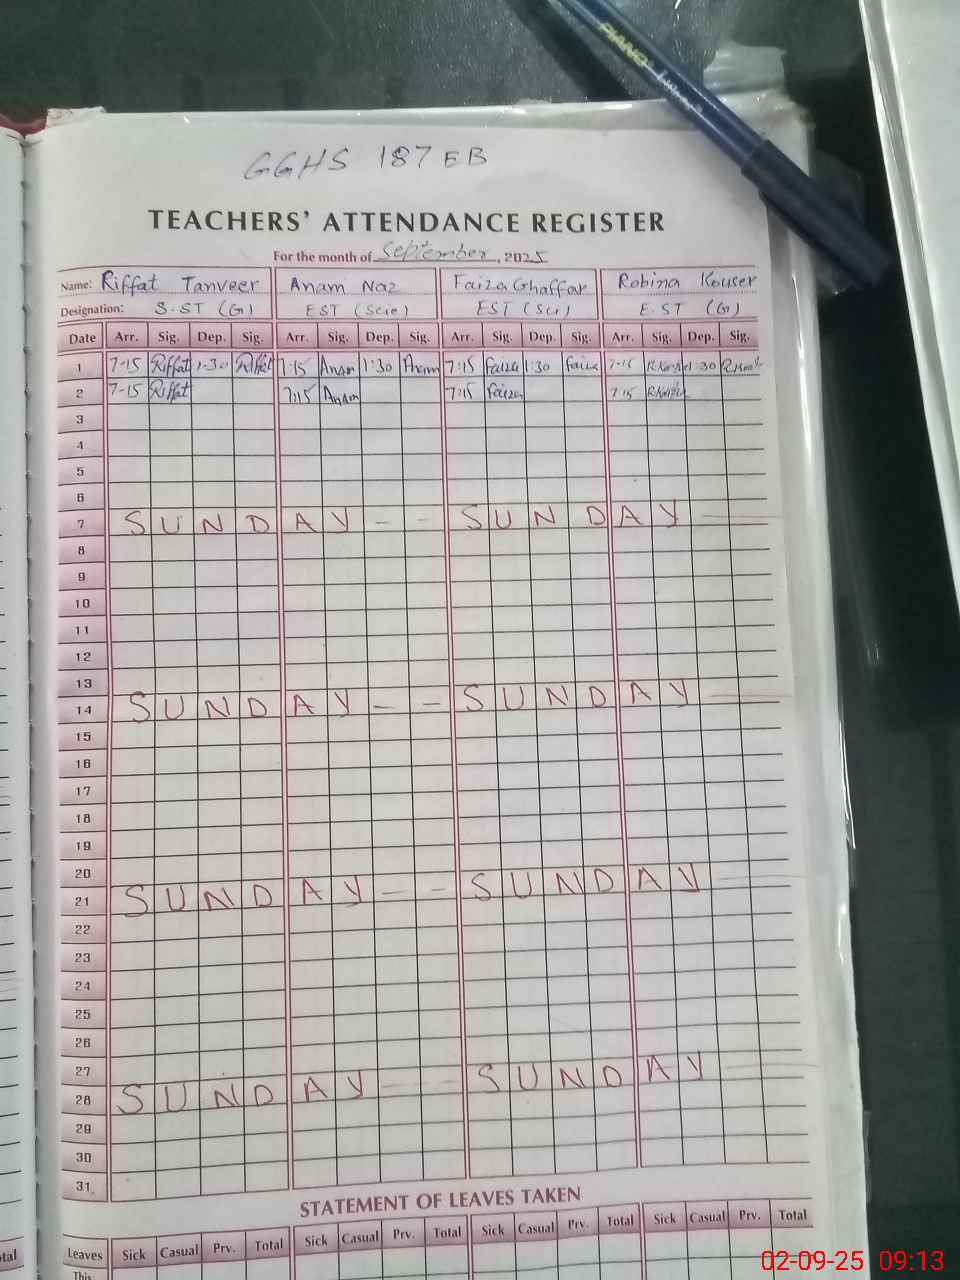 PIANO
GGHS 187 EB
TEACHERS' ATTENDANCE REGISTER
For the month of September, 2025
Name: Riffat Tanveer Anam Naz Faiza Ghaffar Robina Kouser
Designation: S.ST (G) EST (Scie) EST (Sci) E.ST (G)
Date Arr. Sig. Dep. Sig. Arr. Sig. Dep. Sig. Arr. Sig. Dep. Sig. Arr. Sig. Dep. Sig.
1 7-15 Riffat 1-30 Riffat 7:15 Anam 1:30 Anam 7:15 Faiza 1:30 Faiza 7-15 1:30
2 7-15 Riffat 7:15 Anam 7:15 Faiza 7:15
3
4
5
6
7 SUNDAY - - SUNDAY
8
9
10
11
12
13
14 SUNDAY - - SUNDAY
15
16
17
18
19
20
21 SUNDAY - - SUNDAY
22
23
24
25
26
27
28 SUNDAY - - SUNDAY
29
30
31
STATEMENT OF LEAVES TAKEN
Leaves Sick Casual Prv. Total Sick Casual Prv. Total Sick Casual Prv. Total Sick Casual Prv. Total
This
tal
02-09-25 09:13